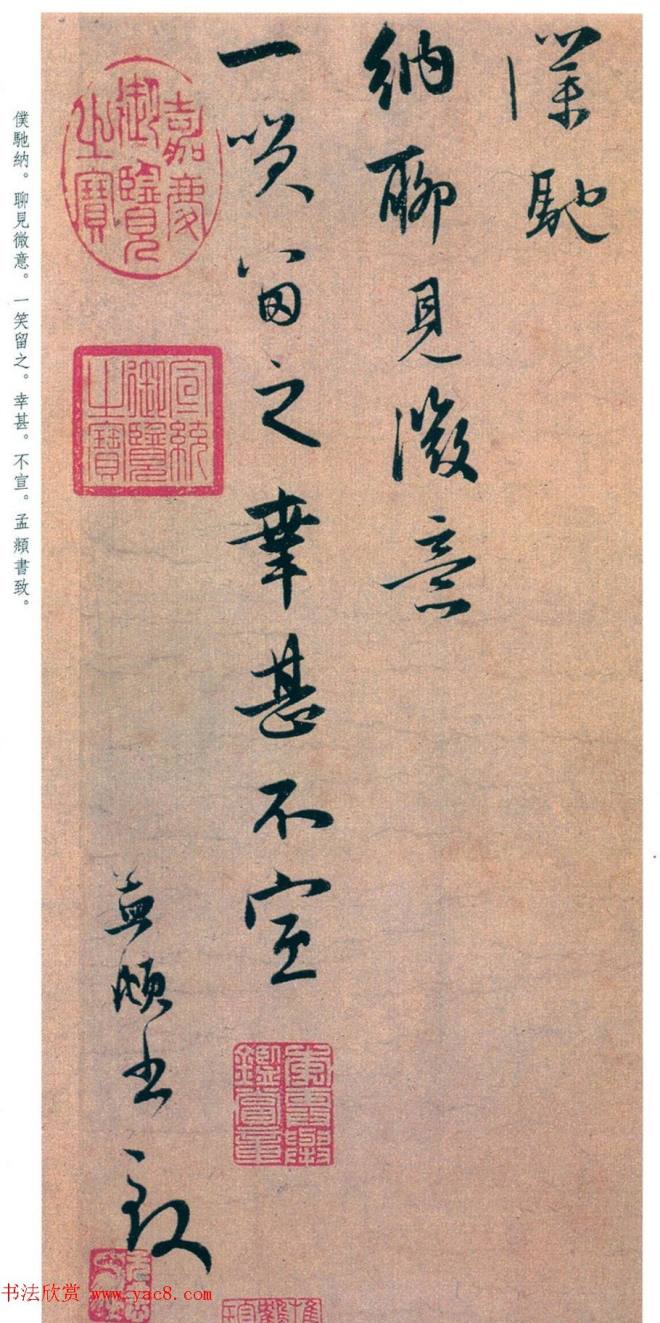 僕馳
納聊見微意
一笑留之幸甚不宣
孟頫書致
嘉慶
御覽
之寶
宣統
御覽
之寶
鑑賞章
僕馳納。聊見微意。一笑留之。幸甚。不宣。孟頫書致。
书法欣赏 www.yac8.com